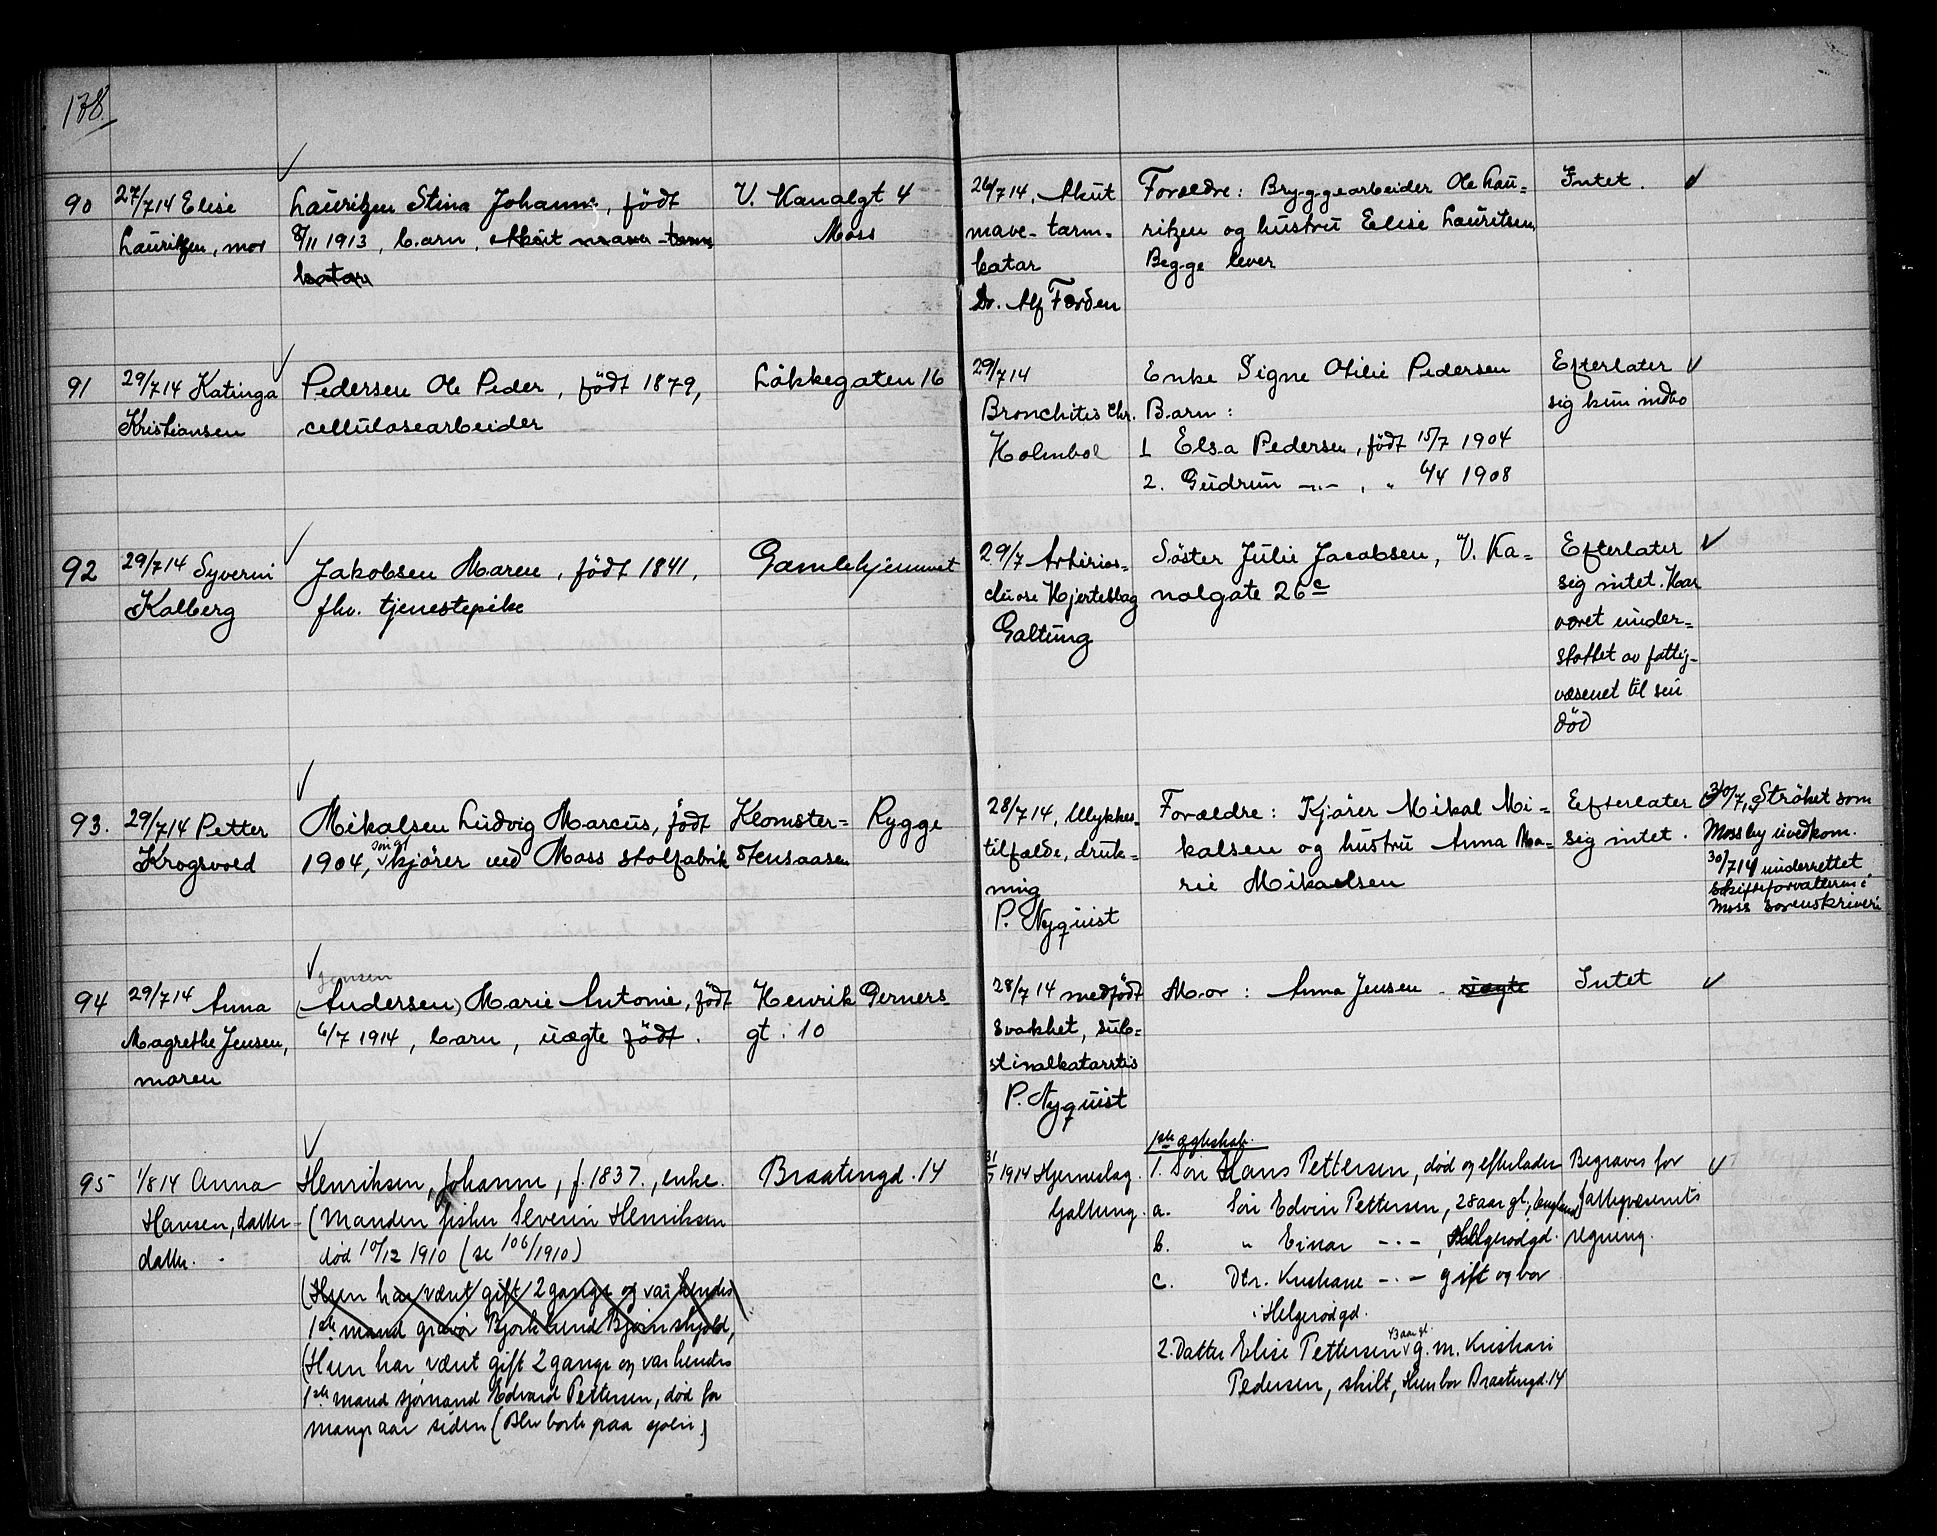 178.
90
27/7 14 Elise
Lauritzen, mor
Lauritzen Stina Johanne, födt
8/11 1913, barn, Akut mave-tarm
katar
V. Kanalgt 4
Moss
26/7 14, Akut
mave-tarm-
katar
Dr. Alf Forden
Forældre: Bryggearbeider Ole Lau-
ritzen og hustru Elise Lauritsen
Begge lever
Intet.
91
29/7 14 Katinga
Kristiansen
Pedersen Ole Peder, födt 1879,
cellulosearbeider
Løkkegaten 16
29/7 14
Bronchitis chr.
Holmbo
Enke Signe Otilie Pedersen
Barn:
1 Elsa Pedersen, födt 15/7 1904
2. Gudrun -"-, " 6/4 1908
Efterlater
sig kun indbo
92
29/7 14 Syverin
Kalberg
Jakobsen Maren, födt 1841,
fhv. tjenestepike
Gamlehjemmet
29/7 Arterios-
clerose Hjerteslag
Galtung
Söster Julie Jacobsen, V. Ka-
nalgate 26c
Efterlater
sig intet. Har
været under-
støttet av fattig-
væsenet til sin
död
93.
29/7 14 Petter
Krogsvold
Mikalsen Ludvig Marcus, födt
1904, søn af kjörer ved Moss stolfabrik
Klomster-
stensaasen
Rygge
28/7 14, Ulykkes-
tilfælde, druk-
ning
P. Nyquist
Forældre: Kjörer Mikal Mi-
kalsen og hustru Anna Ma-
rie Mikaelsen
Efterlater
sig intet.
30/7, Ströket som
Moss by uvedkom.
30/7 14 underrettet
skifteforvalteren i
Moss sorenskriveri
94
29/7 14 Anna
Magrethe Jensen,
moren
Jensen
(Andersen) Marie Antonie, födt
6/7 1914, barn, uægte födt.
Henrik Gerners-
gt. 10
28/7 14 medfödt
svakhet,
P. Nyquist
Mor: Anna Jensen - uægte
Intet
95
1/8 14 Anna
Hansen, datter-
datter.
Henriksen, Johanne, f. 1837, enke.
(Manden fisker Severin Henriksen
død 10/12 1910 (se 106/1910)
(Hun har været gift 2 gange og var hendes
1ste mand gravør Bjørklund Bjørnskjold,
(Hun har været gift 2 gange og var hendes
1ste mand sjømand Edvard Pettersen, død for
mange aar siden (Blev borte paa sjøen)
Braatengd. 14
31/7 1914 Hjerneslag.
Galtung.
1ste ægteskab.
1. Søn Hans Pettersen, død og efterlader
a. Søn Edvin Pettersen, 28 aar gl., England
b. " Einar -"-, Helgerødgd.
c. Dtr. Kristiane -"- gift og bor
i Helgerødgd.
2. Datter Elise Pettersen 43 aar gl. g. m. Kristian
Pedersen, skilt, Hun bor Braatengd. 14
Begraves for
fattigvæsenets
regning.